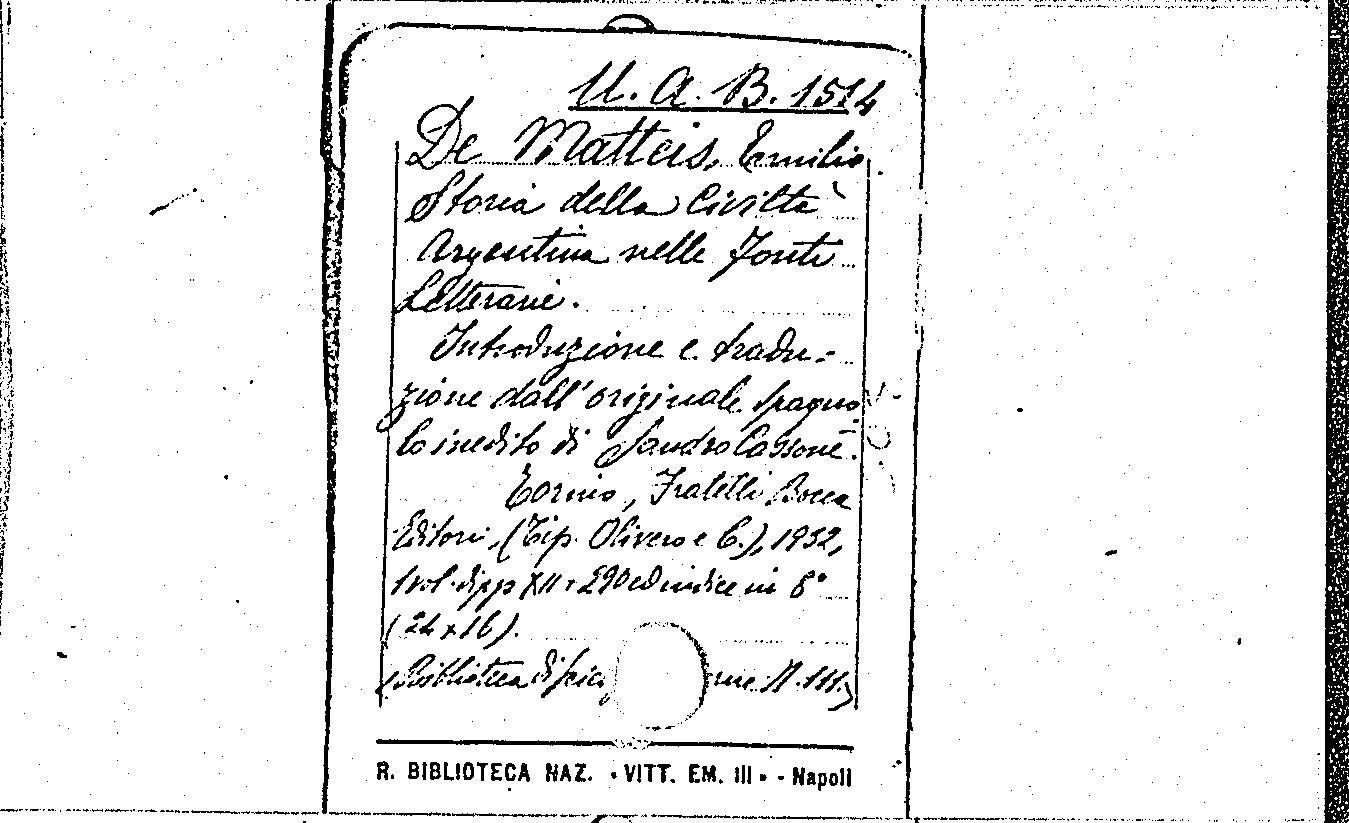 U. A. B. 1514
De Matteis, Emilio
Storia della Civiltà
Argentina nelle Fonti
Letterarie.
Introduzione e tradu-
zione dall'originale spagno
lo inedito di Sandro Cassone.
Torino, Fratelli Bocca
Editori, (Tip. Olivero e C.), 1932,
1 vol. di pp XII + 290 ed indice in 8°
(24 x 16).
(Biblioteca di scie rne N. 111.)
R. BIBLIOTECA NAZ. « VITT. EM. III » - Napoli